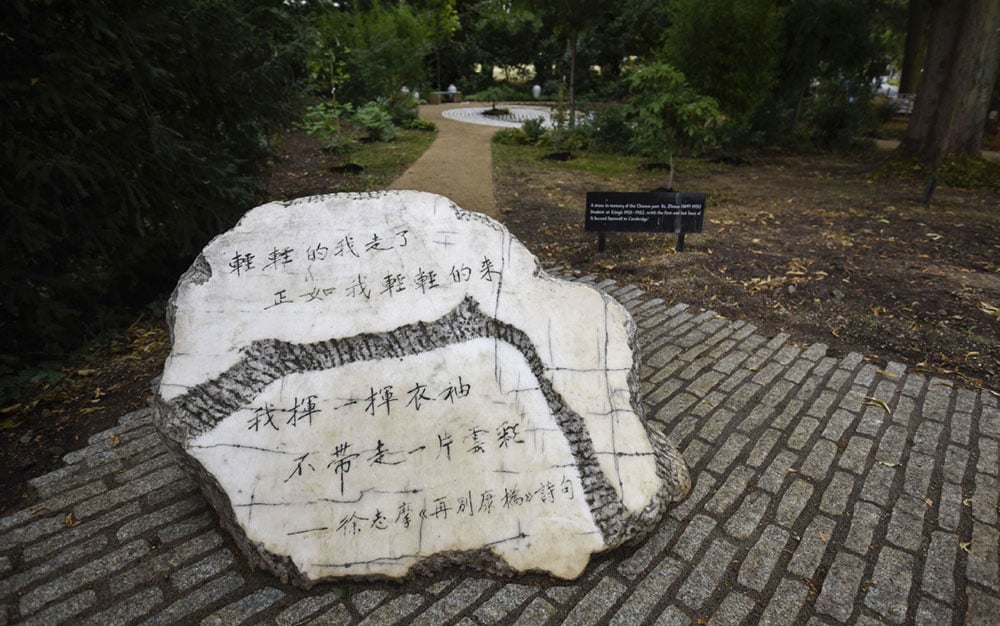 輕輕的我走了
正如我輕輕的來
我揮一揮衣袖
不帶走一片雲彩
—徐志摩《再別康橋》詩句
A stone in memory of the Chinese poet Xu Zhimo (1897-1931)
Student at King's 1921-1922, with the first and last lines of
'A Second Farewell to Cambridge'